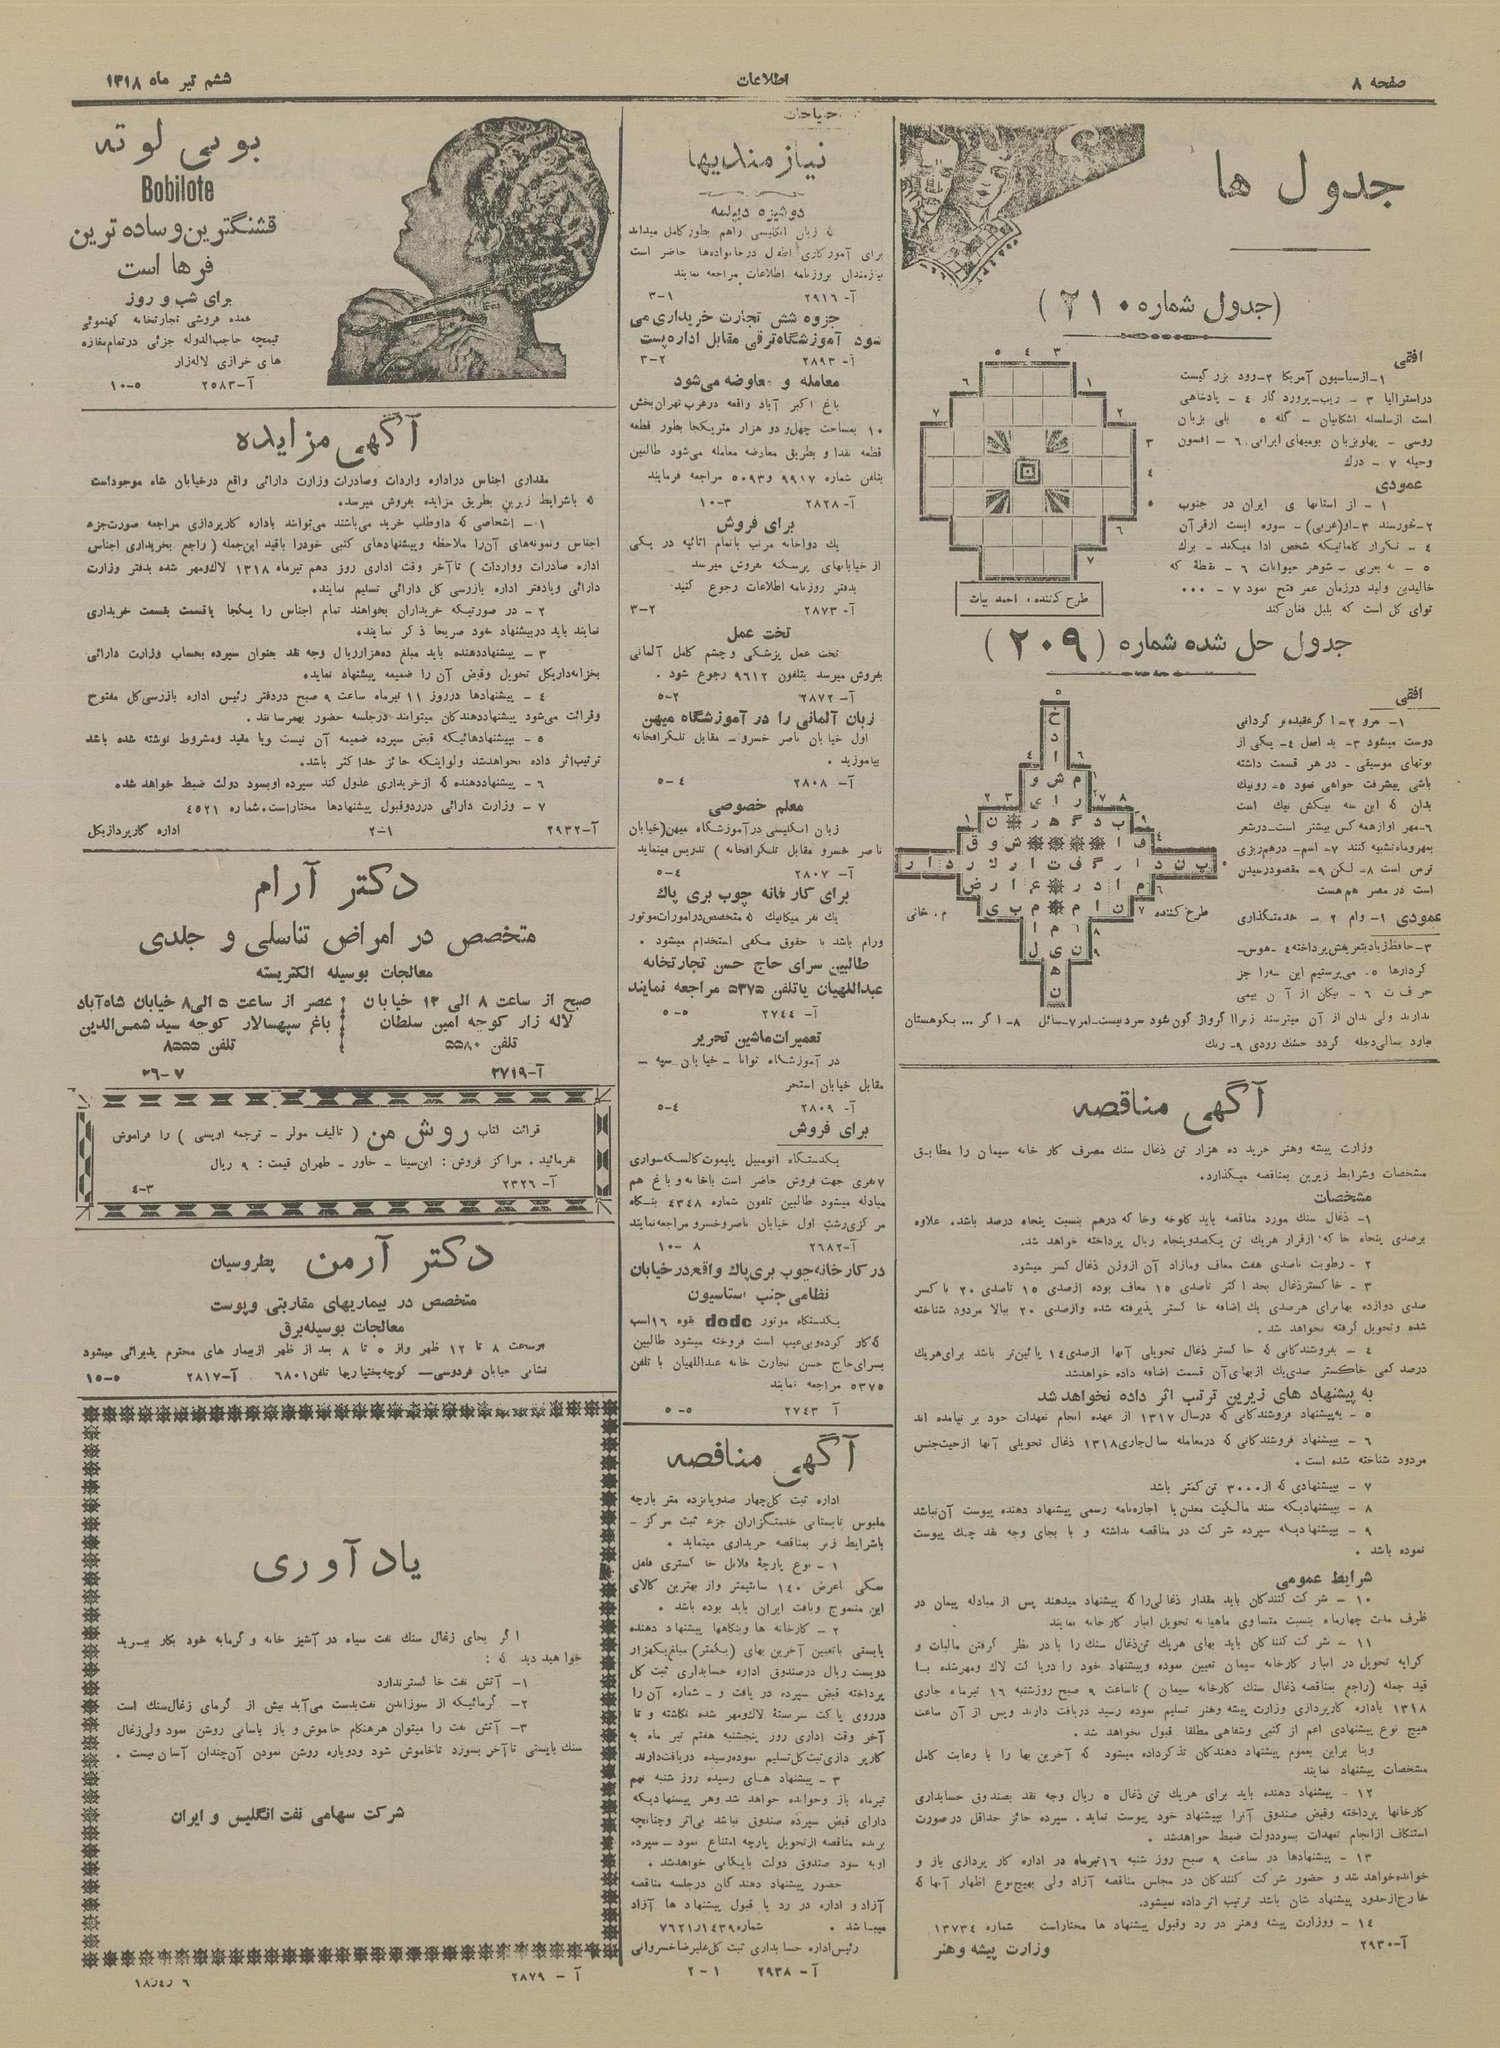 صفحه ۸
اطلاعات
ششم تیر ماه ۱۳۱۸
جدول ها
(جدول شماره ۲۱۰)
افقی
۱-ازسیاسیون آمریکا ۲-رود بزرگیست
است ازسلسله اشکانیان - گله ۵ بلی بزبان
روسی - پهلوبزبان بومیهای ایرانی ۶ - افسون
وحیله ۷ - درك
عمودی
۱ - از استانها ی ایران در جنوب
۲-خورسند ۳-او(عربی) - سوره ایست ازقرآن
۴ - تکرار کلماتیکه شخص ادا میکند - برك
خالدبن ولید درزمان عمر فتح نمود ۷ - ۰۰۰
توای گل است که بلبل فغان کند
طرح کننده، احمد بیات
جدول حل شده شماره (۲۰۹)
افقی
دوست میشود ۳- بد اصل ۴- یکی از
نوتهای موسیقی - درهر قسمت داشته
باشی پیشرفت خواهی نمود ۵- رونیك
بدان که این سه نیکش نیك است
۶-مهر اوازهمه کس بیشتر است-درشعر
بمهروماه تشبیه کنند ۷- اسم- درهم ریزی
ترس است ۸- لکن ۹- مقصودرسیدن
است در مصر هم هست
طرح کننده م . خانی
عمودی ۱- وام ۲ - خدمتگذاری
آگهی مناقصه
وزارت پیشه وهنر خرید ده هزار تن ذغال سنك مصرف کار خانه سیمان را مطابق
مشخصات وشرایط زیرین بمناقصه میگذارد.
مشخصات
۱- ذغال سنك مورد مناقصه باید کلوخه وخاکه درهم بنسبت پنجاه درصد باشد. علاوه
برصدی پنجاه خاکه از قرار هریك تن یکصدوپنجاه ریال پرداخته خواهد شد.
۲ - رطوبت تاصدی هفت معاف ومازاد آن ازوزن ذغال کسر میشود
۳ - خاکسترذغال بحد اکثر تاصدی ۱۵ معاف بوده ازصدی ۱۵ تاصدی ۲۰ با کسر
صدی دوازده بهابرای هرصدی یك اضافه خا کستر پذیرفته شده وازصدی ۲۰ ببالا مردود شناخته
شده وتحویل گرفته نخواهد شد .
۴ - بفروشندگانی که خا کستر ذغال تحویلی آنها ازصدی۱۴ پائین تر باشد برای هریك
درصد کمی خاکستر صدی یك ازبهای آن قسمت اضافه داده خواهدشد
به پیشنهاد های زیرین ترتیب اثر داده نخواهد شد
۵ - به پیشنهاد فروشندگانی که درسال ۱۳۱۷ از عهده انجام تعهدات خود بر نیامده اند
۶ - بپیشنهاد فروشندگانی که درمعامله سال جاری ۱۳۱۸ ذغال تحویلی آنها ازحیث جنس
مردود شناخته شده است .
۷ - بپیشنهادی که از ۳۰۰۰ تن کمتر باشد
۸ - بپیشنهادیکه سند مالکیت معدن یا اجاره نامه رسمی پیشنهاد دهنده پیوست آن نباشد
۹ - بپیشنهادیکه سپرده شرکت در مناقصه نداشته و یا بجای وجه نقد چك پیوست
نموده باشد .
شرایط عمومی
۱۰ - شرکت کنندگان باید مقدار ذغالی را که پیشنهاد میدهند پس از مبادله پیمان در
ظرف مدت چهارماه بنسبت متساوی ماهیانه تحویل انبار کارخانه نمایند
۱۱ - شرکت کنندگان باید بهای هریك تن ذغال سنك را با در نظر گرفتن مالیات و
کرایه تحویل در انبار کارخانه سیمان تعیین نموده وپیشنهاد خود را درپاکت لاك ومهرشده با
قید جمله (راجع بمناقصه ذغال سنك کارخانه سیمان ) تاساعت ۹ صبح روزشنبه ۱۶ تیرماه جاری
۱۳۱۸ باداره کارپردازی وزارت پیشه وهنر تسلیم نموده رسید دریافت دارند وپس از آن ساعت
هیچ نوع پیشنهادی اعم از کتبی وشفاهی مطلقا قبول نخواهد شد .
وبنا براین بعموم پیشنهاد دهندکان تذکرداده میشود که آخرین بها را با رعایت کامل
مشخصات پیشنهاد نمایند
۱۲ - پیشنهاد دهنده باید برای هریك تن ذغال ۵ ریال وجه نقد بصندوق حسابداری
کارخانها پرداخته وقبض صندوق آنرا بپیشنهاد خود پیوست نماید . سپرده حائز حداقل درصورت
استنکاف ازانجام تعهدات بسوددولت ضبط خواهدشد .
۱۳ - پیشنهادها در ساعت ۹ صبح روز شنبه ۱۶ تیرماه در اداره کار پردازی باز و
خوانده خواهد شد و حضور شرکت کنندگان در مجلس مناقصه آزاد ولی بهیچ نوع اظهار آنها که
خارج ازحدود پیشنهاد شان باشد ترتیب اثر داده نمیشود.
۱۴ - ووزارت پیشه وهنر در رد وقبول پیشنهاد ها مختاراست شماره ۱۳۷۳۴
آ-۲۹۳۰ وزارت پیشه وهنر
نیازمندیها
دوشیزه دیپلمه
که زبان انگلیسی راهم بطور کامل میداند
نیازمندان بروزنامه اطلاعات مراجعه نمایند
آ- ۲۹۱۶ ۱-۳
جزوه شش تجارت خریداری می
شود آموزشگاه ترقی مقابل اداره پست
آ- ۲۸۹۳ ۲-۳
معامله و معاوضه می شود
باغ اکبر آباد واقعه درغرب تهران بخش
۱۰ بمساحت چهل و دو هزار متر یکجا بطور قطعه
قطعه نقدا و بطریق معارضه معامله می شود طالبین
بتلفن شماره ۹۹۱۷ و ۵۰۹۳ مراجعه فرمایند
آ- ۲۸۲۸ ۳-۱۰
برای فروش
یك دواخانه مرتب باتمام اثاثیه در یکی
از خیابانهای پرسکنه بفروش میرسد
بدفتر روزنامه اطلاعات رجوع کنید.
آ- ۲۸۷۳ ۲-۳
تخت عمل
تخت عمل پزشکی و چشم کامل آلمانی
بفروش میرسد بتلفون ۹۶۱۲ رجوع شود .
آ- ۲۸۷۲ ۲-۵
زبان آلمانی را در آموزشگاه میهن
اول خیابان ناصر خسرو - مقابل تلگرافخانه
بیاموزید .
آ- ۲۸۰۸ ۴-۵
معلم خصوصی
زبان انگلیسی در آموزشگاه میهن(خیابان
ناصر خسرو مقابل تلگرافخانه ) تدریس مینماید
آ- ۲۸۰۷ ۴-۵
برای کارخانه چوب بری پاك
یك نفر میکانیك که متخصص در امورات موتور
ورام باشد با حقوق مکفی استخدام میشود .
طالبین سرای حاج حسن تجارتخانه
عبداللهیان یاتلفن ۵۳۷۵ مراجعه نمایند
آ- ۲۷۴۴ ۵-۵
تعمیرات ماشین تحریر
در آموزشگاه توانا - خیابان سپه -
مقابل خیابان استخر
آ- ۲۸۰۹ ۴-۵
برای فروش
یکدستگاه اتومبیل پلیموت کالسکه سواری
۷ نفری جهت فروش حاضر است باخانه و باغ هم
مبادله میشود طالبین تلفون شماره ۴۳۴۸ بنگاه
مرکزی رشتی اول خیابان ناصر و خسرو مراجعه نمایند
آ-۲۶۸۲ ۸ -۱۰
در کارخانه چوب بری پاك واقع در خیابان
نظامی جنب استاسیون
یکدستگاه موتور dodc بقوه ۱۶ اسب
که کار کرده و بی عیب است فروخته میشود طالبین
بسرای حاج حسن تجارت خانه عبداللهیان با تلفن
۵۳۷۵ مراجعه نمایند
آ ۲۷۴۳ ۵-۵
آگهی مناقصه
اداره ثبت کل چهار صدوپانزده متر پارچه
ملبوس تابستانی خدمتگزاران جزء ثبت مرکز -
باشرایط زیر بمناقصه خریداری مینماید .
این منسوج وبافت ایران باید بوده باشد .
۲ - کارخانه ها وبنگاهها پیشنهاد دهنده
بایستی باتعیین آخرین بهای (یکمتر) مبلغ یکهزار
دویست ریال درصندوق اداره حسابداری ثبت کل
پرداخته قبض سپرده در یافت و - شماره آن را
درروی پاکت سربستهٔ لاك ومهر شده نگاشته و تا
آخر وقت اداری روز پنجشنبه هفتم تیر ماه به
کارپردازی ثبت کل تسلیم نموده رسیده دریافت دارند
۳ - پیشنهاد های رسیده روز شنبه نهم
تیرماه باز وخوانده خواهد شد وهر پیشنهادیکه
دارای قبض سپرده صندوق نباشد بی اثر وچنانچه
برنده مناقصه ازتحویل پارچه امتناع نمود - سپرده
او به سود صندوق دولت بایگانی خواهدشد .
حضور پیشنهاد دهندگان درجلسه مناقصه
آزاد و اداره در رد یا قبول پیشنهاد ها آزاد
میباشد . شماره ۷۶۲۱ر۱۴۳۹
رئیس اداره حسابداری ثبت کل علیرضا خسروانی
آ- ۲۹۳۸ ۱-۲
بوبی لوته
Bobilote
قشنگترین و ساده ترین
فرها است
برای شب و روز
عمده فروشی تجارتخانه کهنموئی
تیمچه حاجب الدوله جزئی در تمام مغازه
های خرازی لاله زار
آ-۲۵۸۳ ۵-۱۰
آگهی مزایده
مقداری اجناس دراداره واردات وصادرات وزارت دارائی واقع درخیابان شاه موجوداست
که باشرایط زیرین بطریق مزایده بفروش میرسد.
۱ - اشخاصی که داوطلب خرید می باشند می توانند باداره کارپردازی مراجعه صورت جزء
اجناس ونمونه های آن را ملاحظه وپیشنهادهای کتبی خودرا باقید این جمله ( راجع بخریداری اجناس
اداره صادرات وواردات ) تاآخر وقت اداری روز دهم تیرماه ۱۳۱۸ لاك ومهر شده بدفتر وزارت
دارائی ویادفتر اداره بازرسی کل دارائی تسلیم نمایند.
۲ - در صورتیکه خریداران بخواهند تمام اجناس را یکجا یاقسمت بقسمت خریداری
نمایند باید درپیشنهاد خود صریحا ذکر نمایند.
۳ - پیشنهاددهنده باید مبلغ ده هزارریال وجه نقد بعنوان سپرده بحساب وزارت دارائی
بخزانه داریکل تحویل وقبض آن را ضمیمه پیشنهاد نماید.
۴ - پیشنهادها درروز ۱۱ تیرماه ساعت ۹ صبح دردفتر رئیس اداره بازرسی کل مفتوح
وقرائت می شود پیشنهاددهندگان میتوانند درجلسه حضور بهمرسانند .
۵ - بپیشنهادهائیکه قبض سپرده ضمیمه آن نیست ویا مقید ومشروط نوشته شده باشد
ترتیب اثر داده نخواهدشد ولواینکه حائز حداکثر باشد.
۶ - پیشنهاددهنده که ازخریداری عدول کند سپرده اوبسود دولت ضبط خواهد شد.
۷ - وزارت دارائی درردوقبول پیشنهادها مختاراست. شماره ۴۵۲۱
آ-۲۹۳۲ ۱-۲ اداره کارپردازیکل
دکتر آرام
متخصص در امراض تناسلی و جلدی
معالجات بوسیله الکتریسته
صبح از ساعت ۸ الی ۱۲ خیابان
لاله زار کوچه امین سلطان
تلفن ۵۵۸۰
عصر از ساعت ۵ الی ۸ خیابان شاه آباد
باغ سپهسالار کوچه سید شمس الدین
تلفن ۸۵۵۵
آ-۲۷۱۹ ۷-۲۶
قرائت کتاب روش من ( تالیف مولر - ترجمه اویسی ) را فراموش
نفرمائید . مراکز فروش : ابن سینا - خاور - طهران قیمت : ۹ ریال
آ- ۲۳۲۶ ۳-۴
دکتر آرمن پطروسیان
متخصص در بیماریهای مقاربتی و پوست
معالجات بوسیله برق
ازساعت ۸ تا ۱۲ ظهر واز ۵ تا ۸ بعد از ظهر ازبیمار های محترم پذیرائی میشود
نشانی خیابان فردوسی- کوچه بختیاریها تلفن ۶۸۰۱ آ-۲۸۱۷ ۵-۱۵
یادآوری
اگر بجای زغال سنك نفت سیاه در آشپز خانه و گرمابه خود بکار ببرید
خواهید دید که :
۱- آتش نفت خاکستر ندارد
۲- گرمائیکه از سوزاندن نفت بدست می آید بیش از گرمای زغال سنك است
۳- آتش نفت را میتوان هرهنگام خاموش و باز بآسانی روشن نمود ولی زغال
سنك بایستی تاآخر بسوزد تاخاموش شود ودوباره روشن نمودن آن چندان آسان نیست .
شرکت سهامی نفت انگلیس و ایران
آ - ۲۸۷۹